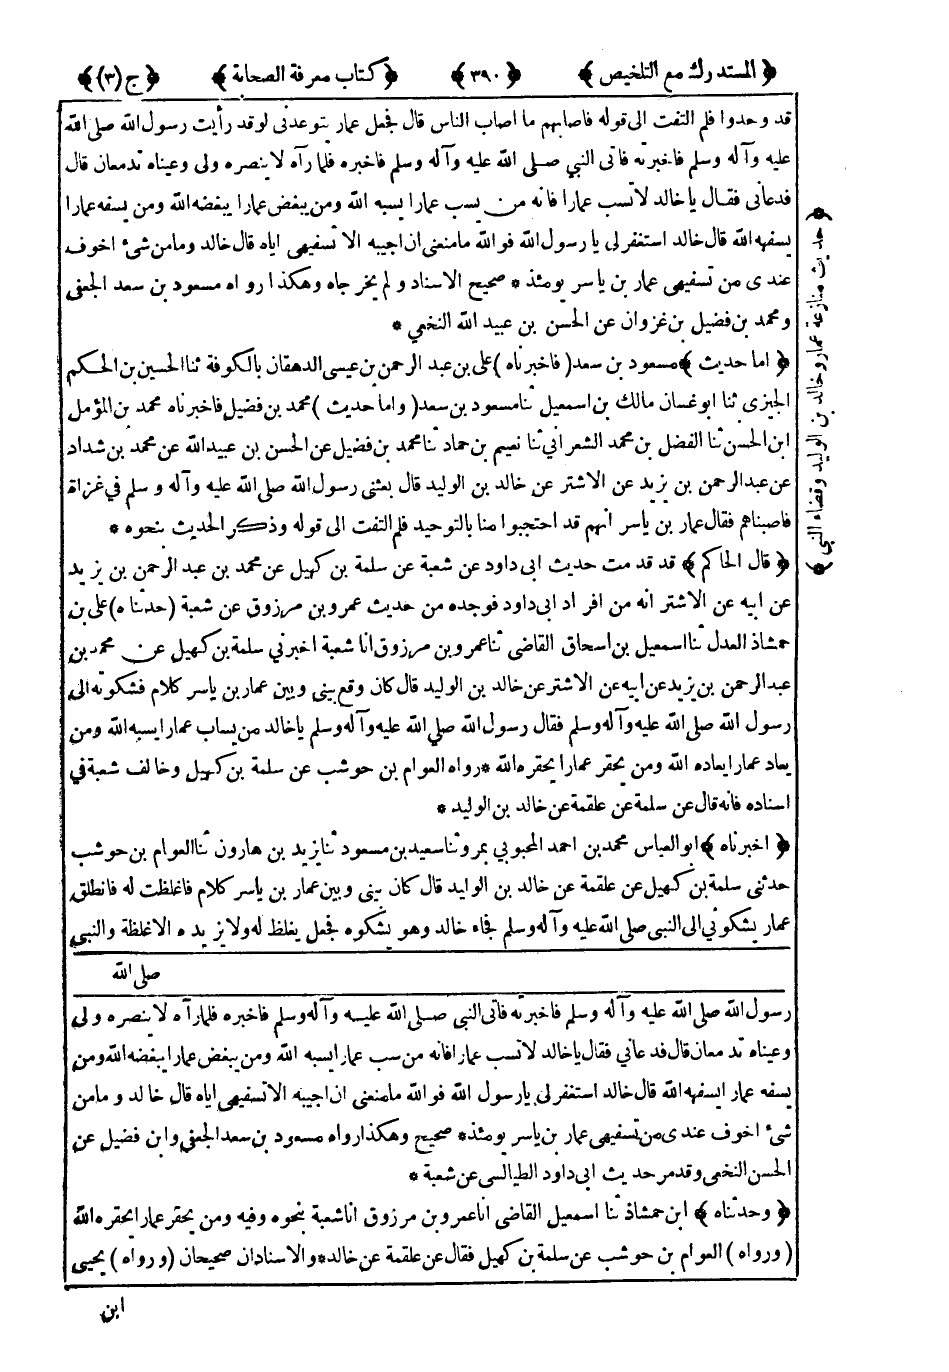 ﴿ المستدرك مع التلخيص ﴾ ﴿ ٣٩٠ ﴾ ﴿ كتاب معرفة الصحابة ﴾ ﴿ ج (٣) ﴾
قد وحدوا فلم التفت الى قوله فاصابهم ما اصاب الناس قال فجعل عمار يتوعدنى لو قد رأيت رسول الله صلى الله
عليه وآله وسلم فاخبرته فاتى النبي صلى الله عليه وآله وسلم فاخبره فلما رآه لا ينصره ولى وعيناه تدمعان قال
فدعانى فقال يا خالد لا تسب عمارا فانه من يسب عمارا يسبه الله ومن يبغض عمارا يبغضه الله ومن يسفه عمارا
يسفهه الله قال خالد استغفر لى يا رسول الله فو الله ما منعنى ان اجيبه الا تسفيهى اياه قال خالد وما من شئ اخوف
عندى من تسفيهى عمار بن ياسر يومئذ * صحيح الاسناد ولم يخرجاه وهكذا رواه مسعود بن سعد الجعفى
ومحمد بن فضيل بن غزوان عن الحسن بن عبيد الله النخعى *
﴿ اما حديث ﴾ مسعود بن سعد ( فاخبرناه ) على بن عبد الرحمن بن عيسى الدهقان بالكوفة ثنا الحسين بن الحكم
الجيزى ثنا ابو غسان مالك بن اسمعيل ثنا مسعود بن سعد ( واما حديث ) محمد بن فضيل فاخبرناه محمد بن المؤمل
ابن الحسن ثنا الفضل بن محمد الشعرانى ثنا نعيم بن حماد ثنا محمد بن فضيل عن الحسن بن عبيد الله عن محمد بن شداد
عن عبد الرحمن بن يزيد عن الاشتر عن خالد بن الوليد قال بعثنى رسول الله صلى الله عليه وآله وسلم فى غزاة
فاصبناهم فقال عمار بن ياسر انهم قد احتجبوا منا بالتوحيد فلم التفت الى قوله وذكر الحديث بنحوه *
﴿ قال الحاكم ﴾ قد قدمت حديث ابى داود عن شعبة عن سلمة بن كهيل عن محمد بن عبد الرحمن بن يزيد
عن ابيه عن الاشتر انه من افراد ابى داود فوجده من حديث عمرو بن مرزوق عن شعبة ( حدثناه ) على بن
حمشاذ العدل ثنا اسمعيل بن اسحاق القاضى ثنا عمرو بن مرزوق انا شعبة اخبرنى سلمة بن كهيل عن محمد بن
عبد الرحمن بن يزيد عن ابيه عن الاشتر عن خالد بن الوليد قال كان وقع بينى وبين عمار بن ياسر كلام فشكوته الى
رسول الله صلى الله عليه وآله وسلم فقال رسول الله صلى الله عليه وآله وسلم يا خالد من يساب عمارا يسبه الله ومن
يعاد عمارا يعاده الله ومن يحقر عمارا يحقره الله * رواه العوام بن حوشب عن سلمة بن كهيل وخالف شعبة فى
اسناده فانه قال عن سلمة عن علقمة عن خالد بن الوليد *
﴿ اخبرناه ﴾ ابو العباس محمد بن احمد المحبوبى بمرو ثنا سعيد بن مسعود ثنا يزيد بن هارون ثنا العوام بن حوشب
حدثنى سلمة بن كهيل عن علقمة عن خالد بن الوليد قال كان بينى وبين عمار بن ياسر كلام فاغلظت له فانطلق
عمار يشكونى الى النبى صلى الله عليه وآله وسلم فجاء خالد وهو يشكوه فجعل يغلظ له ولا يزيده الا غلظة والنبى
صلى الله
رسول الله صلى الله عليه وآله وسلم فاخبرته فاتى النبى صلى الله عليه وآله وسلم فاخبره فلما رآه لا ينصره ولى
وعيناه تدمعان قال فدعانى فقال يا خالد لا تسب عمارا فانه من سب عمارا يسبه الله ومن يبغض عمارا يبغضه الله ومن
يسفه عمارا يسفهه الله قال خالد استغفر لى يا رسول الله فو الله ما منعنى ان اجيبه الا تسفيهى اياه قال خالد وما من
شئ اخوف عندى من تسفيهى عمار بن ياسر يومئذ * صحيح وهكذا رواه مسعود بن سعد الجعفى وابن فضيل عن
الحسن النخعى وقد مر حديث ابى داود الطيالسى عن شعبة *
﴿ وحدثناه ﴾ ابن حمشاذ ثنا اسمعيل القاضى انا عمرو بن مرزوق انا شعبة بنحوه وفيه ومن يحقر عمارا يحقره الله
( ورواه ) العوام بن حوشب عن سلمة بن كهيل فقال عن علقمة عن خالد * والاسنادان صحيحان ( ورواه ) يحيى
ابن
﴿ حديث منازعة عمار وخالد بن الوليد وقضاء النبى ﴾